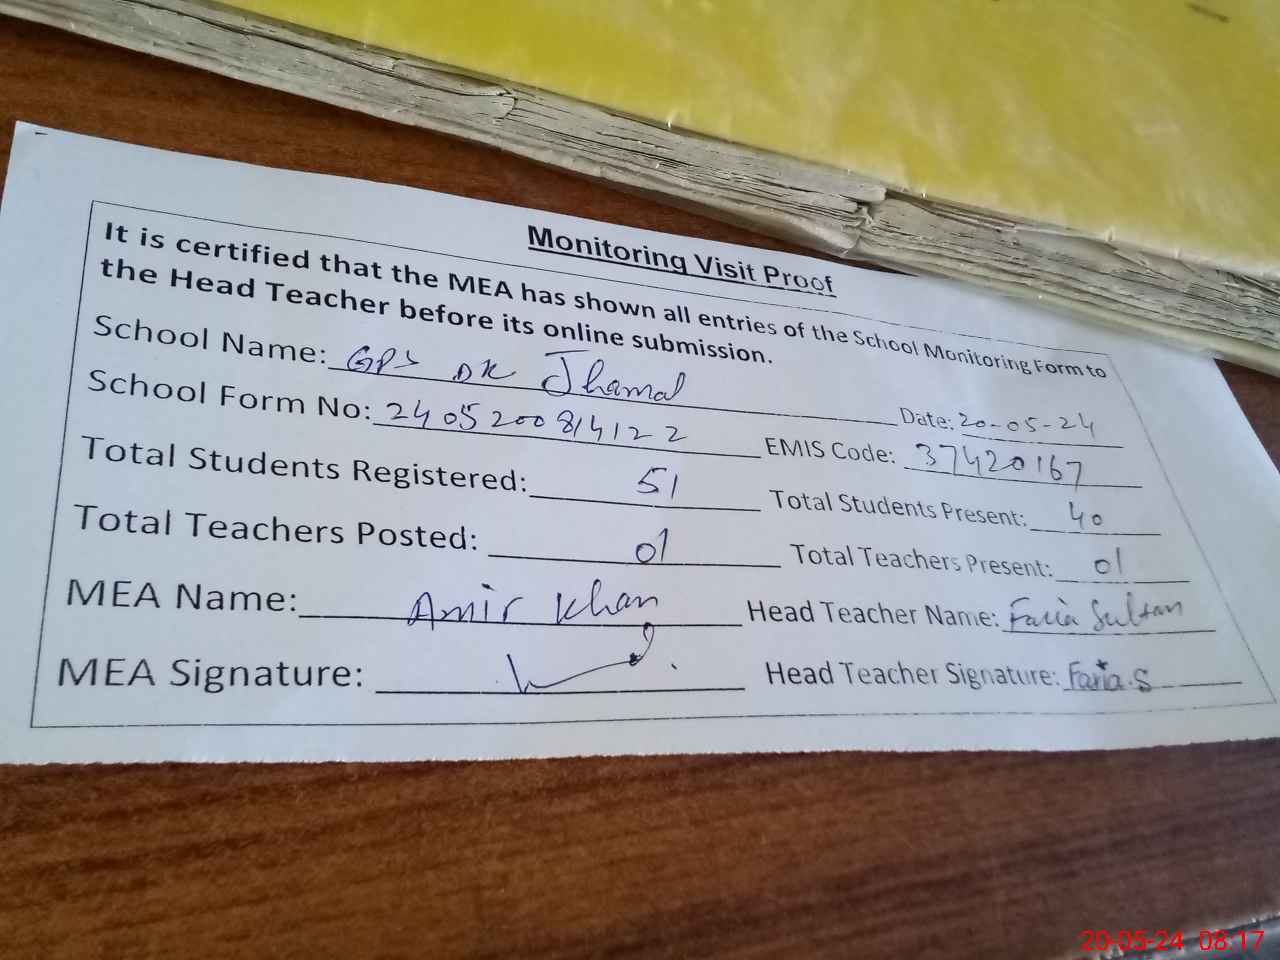 Monitoring Visit Proof
It is certified that the MEA has shown all entries of the School Monitoring Form to
the Head Teacher before its online submission.
School Name: GPS DK Jhamal Date: 20-05-24
School Form No: 2405200814122 EMIS Code: 37420167
Total Students Registered: 51 Total Students Present: 40
Total Teachers Posted: 01 Total Teachers Present: 01
MEA Name: Amir Khan Head Teacher Name: Faria Sultan
MEA Signature: Head Teacher Signature: Faria.S
20-05-24 08:17